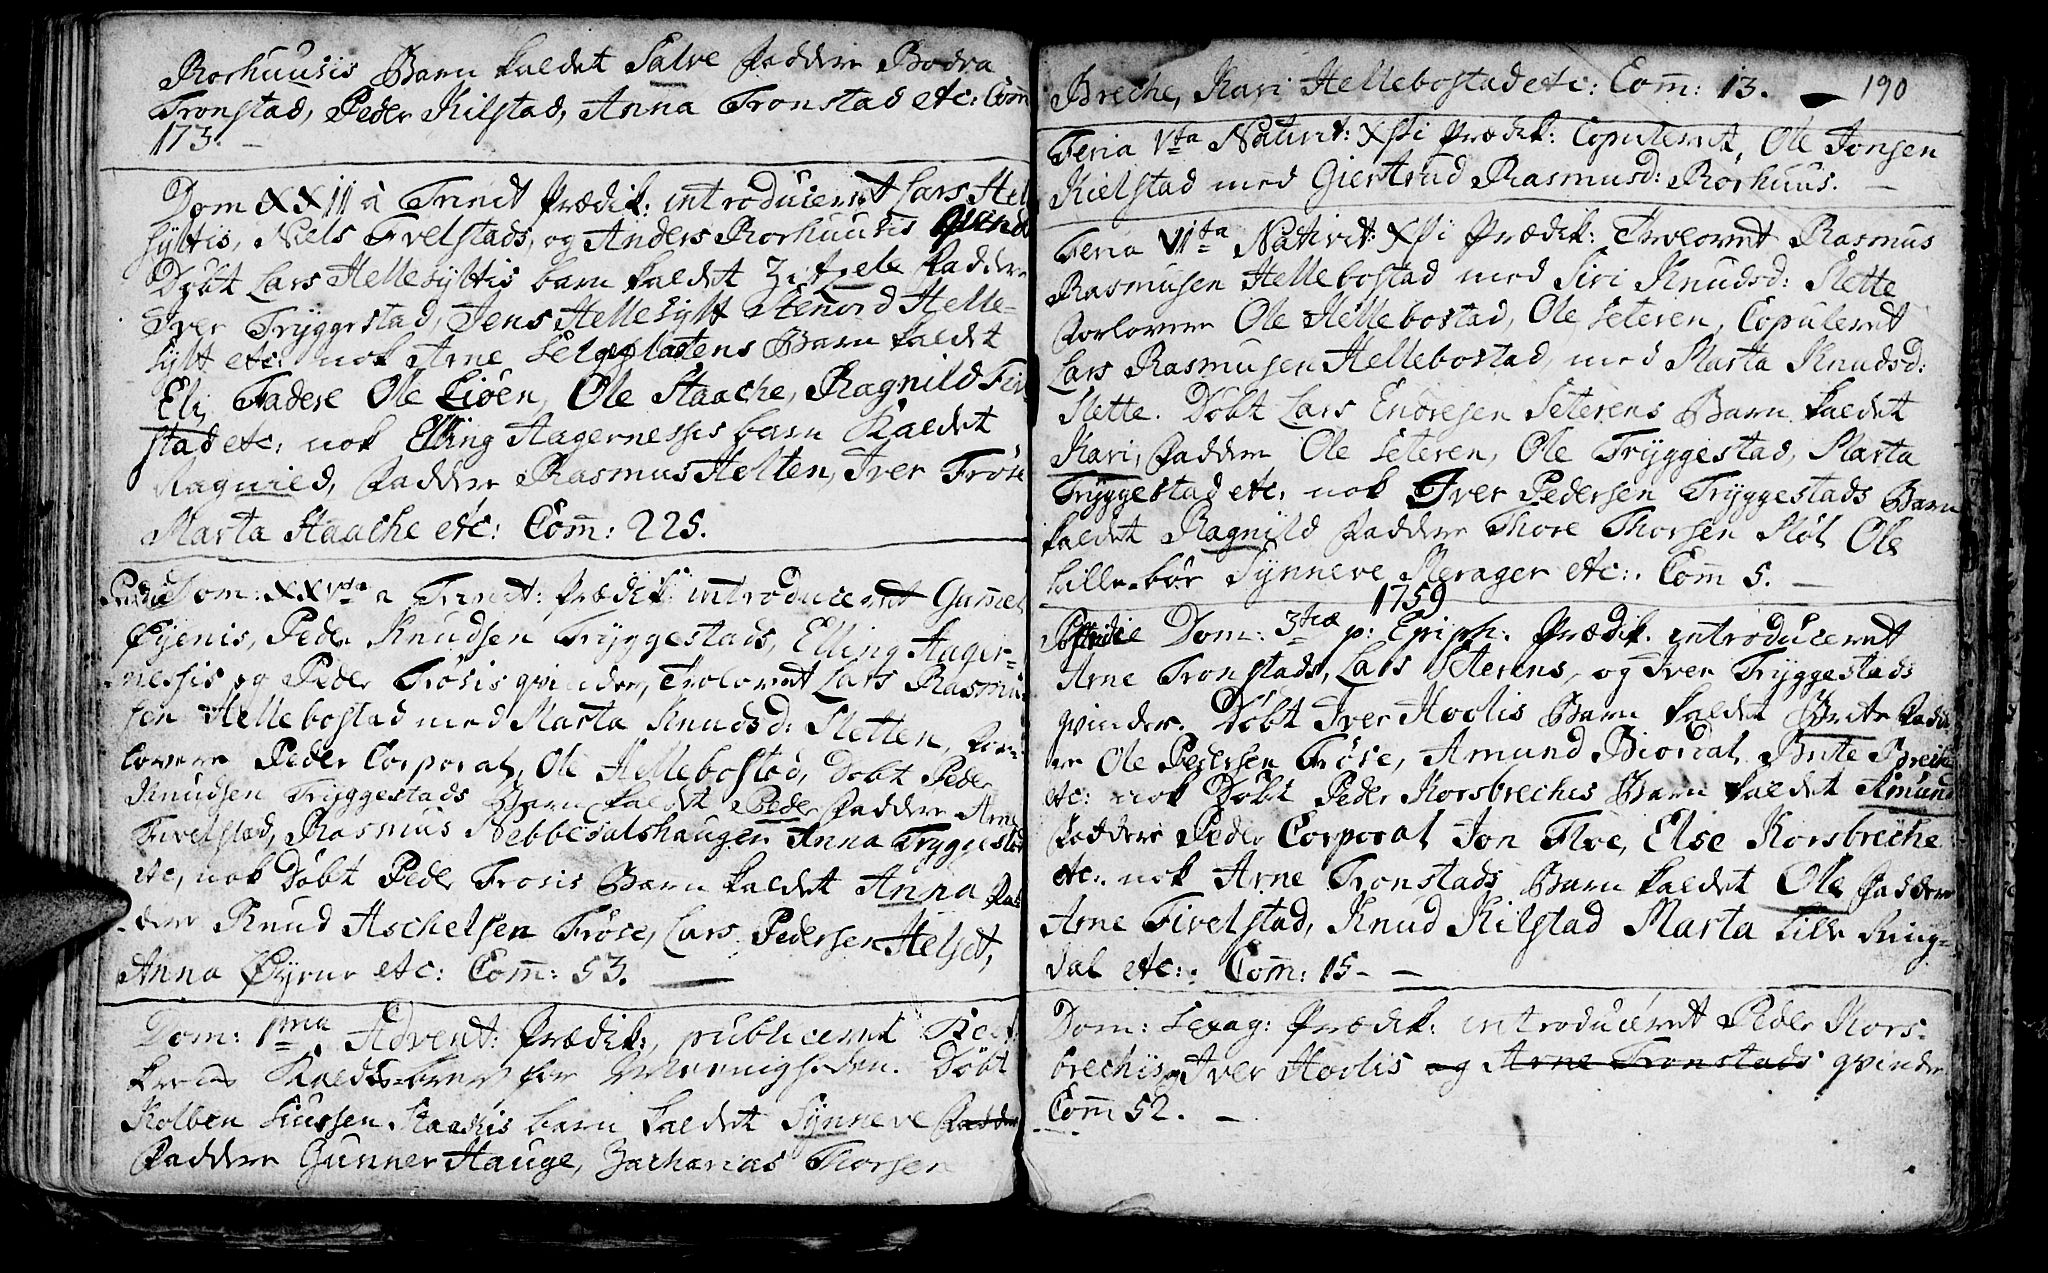 Rorhuusis Barn kaldet Salve Faddere Bodva
Tronstad, Peder Kilstad, Anna Tronstad etc: Com̄
173. –
Dom XXII à Trinit Prædik: introduceret Lars Hel
syltis, Niels Fivelstads, og Anders Rorhuusis qvind
Døbt Lars Hellesyltis barn kaldet Faddere
Iver Tryggestad, Jens Hellesylt Helle-
sylt etc: nok Arne Barn kaldet
Eli, Fadere Ole Liøen, Ole Haache, Ragnild Fiv
stad etc: nok Elling Aagernessis barn Kaldet
Ragnild, Faddere Rasmus Holten, Iver Frøse
Marta Haache etc: Com̄: 225.
Dom: XXV a Trinit: Prædik: introduceret Gum̄el
Øyenis, Peder Knudsen Tryggestads, Elling Aager-
nessis og Peder Frøsis qvinder, Trolovet Lars Rasmu
sen Hellebostad med Marta Knudsd: Sletten, For-
lovere Peder Corporal, Ole Hellebostad, Døbt Peder
Knudsen Tryggestads Barn kaldet Peder Faddere Arne
Fivelstad, Rasmus Nebbedalshaugen Anna Tryggestad
etc, nok Døbt Peder Frosis Barn kaldet Anna Fad
dere Knud Aschelsen Frøse, Lars Pedersen Helset,
Anna Øyrur etc: Com̄: 53. —
Dom: 1ma Advent: Prædik:, publiceret
for Meenigheden. Døbt
Kolben Siursen Haakis barn kaldet Synneve Fadder
Faddere Gunner Hauge, Zacharias Thorsen
Breche, Kari Hellebostad etc: Com̄: 13. — 190
Feria Vta Nativit: Xsti Prædik: Copuleret, Ole Jonsen
Kielstad med Giertrud Rasmusd: Rorhuus. —
Feria VIta Nativit: Xsti Prædik: Troloved Rasmus
Rasmusen Hellebostad med Siri Knudsd: Slette
Forlovere Ole Hellebostad, Ole Seteren, Copuleret
Lars Rasmusen Hellebostad, med Marta Knudsd:
Slette. Døbt Lars Endresen Seterens Barn kaldet
Kari, Faddere Ole Seteren, Ole Tryggestad, Marta
Tryggestad etc: nok Iver Pedersen Tryggestads Barn
kaldet Ragnild Faddere Thore Thorsen Støl Ole
Lillebøe Synneve Merager etc:. Com̄ 5. —
1759
Dom: 3tia p: Epiph: Prædik. introduceret
Arne Tronstads, Lars Seterens, og Iver Tryggestads
qvinder. Døbt Iver Hoolis Barn kaldet Brite Fadde
re Ole Pedersen Frøse, Amund Biordal Brite Breche
etc: nok Døbt Peder Korsbreches Barn kaldet Amund
Faddere Peder Corporal Jon Floe, Else Korsbreche
etc. nok Arne Tronstads Barn kaldet Ole Faddere
Arne Fivelstad, Knud Kilstad Marta Lille Ring-
dal etc:. Com̄: 15 – —
Dom: Sexag: Prædik: introduceret Peder Kors-
brechis, og Iver Hoolis og Arne Tronstads qvinder
Com̄ 52. —